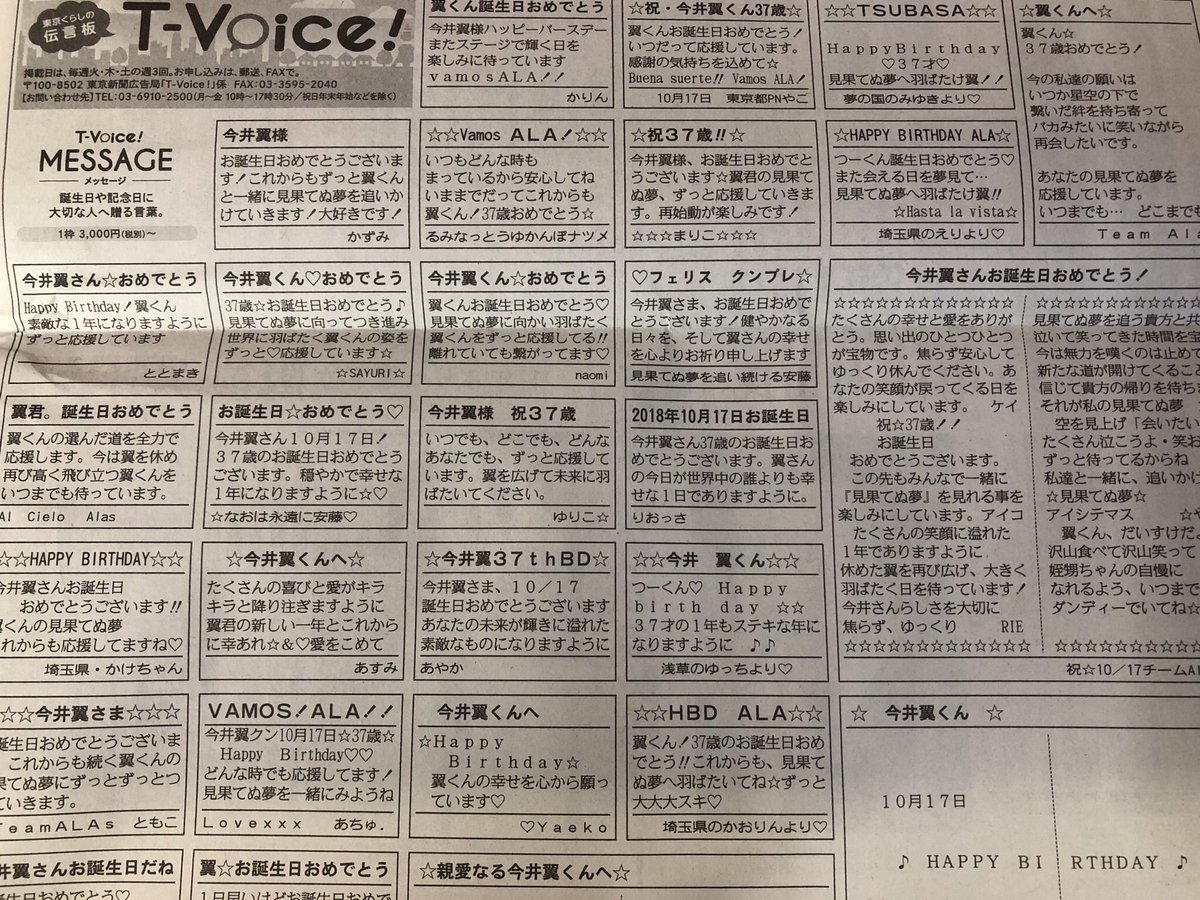 東京くらしの
伝言板
T-Voice!
掲載日は、毎週火・木・土の週3回。お申し込みは、郵送、FAXで。
〒100-8502 東京新聞広告局「T-Voice!」係 FAX:03-3595-2040
【お問い合わせ先】TEL:03-6910-2500(月〜金 10時〜17時30分／祝日年末年始などを除く)
翼くん誕生日おめでとう
今井翼様ハッピーバースデー
またステージで輝く日を
楽しみに待っています
vamosALA！！
かりん
☆祝・今井翼くん37歳☆
翼くんお誕生日おめでとう！
いつだって応援しています。
感謝の気持ちを込めて☆
Buena suerte!! Vamos ALA！
10月17日 東京都PNやこ
☆☆TSUBASA☆☆
HappyBirthday
♡37才♡
見果てぬ夢へ羽ばたけ翼！！
夢の国のみゆきより♡
☆翼くんへ☆
翼くん☆
37歳おめでとう！
今の私達の願いは
いつか星空の下で
繋いだ絆を持ち寄って
バカみたいに笑いながら
再会したいです。
あなたの見果てぬ夢を
応援しています。
いつまでも… どこまで
Team Ala
T-Voice!
MESSAGE
メッセージ
誕生日や記念日に
大切な人へ贈る言葉。
1枠 3,000円(税別)〜
今井翼様
お誕生日おめでとうございま
す！これからもずっと翼くん
と一緒に見果てぬ夢を追いか
けていきます！大好きです！
かずみ
☆☆Vamos ALA！☆☆
いつもどんな時も
まっているから安心してね
いままでだってこれからも
翼くん！37歳おめでとう☆
るみなっとうゆかんぼナツメ
☆祝37歳!!☆
今井翼様、お誕生日おめでと
うございます☆翼君の見果て
ぬ夢、ずっと応援していきま
す。再始動が楽しみです！
☆☆☆まりこ☆☆☆
☆HAPPY BIRTHDAY ALA☆
つーくん誕生日おめでとう♡
また会える日を夢見て…
見果てぬ夢へ羽ばたけ翼!!
☆Hasta la vista☆
埼玉県のえりより♡
今井翼さん☆おめでとう
Happy Birthday！翼くん
素敵な1年になりますように
ずっと応援しています
ととまき
今井翼くん♡おめでとう
37歳☆お誕生日おめでとう♪
見果てぬ夢に向ってつき進み
世界に羽ばたく翼くんの姿を
ずっと♡応援しています☆
☆SAYURI☆
今井翼くん☆おめでとう
翼くんお誕生日おめでとう♡
見果てぬ夢に向かい羽ばたく
翼くんをずっと応援してる!!
離れていても繋がってます♡
naomi
♡フェリス クンプレ☆
今井翼さま、お誕生日おめで
とうございます！健やかなる
日々を、そして翼さんの幸せ
を心よりお祈り申し上げます
見果てぬ夢を追い続ける安藤
今井翼さんお誕生日おめでとう！
☆☆☆☆☆☆☆☆☆☆☆☆☆
たくさんの幸せと愛をありが
とう。思い出のひとつひとつ
が宝物です。焦らず安心して
ゆっくり休んでください。あ
なたの笑顔が戻ってくる日を
楽しみにしています。 ケイ
祝☆37歳！！
お誕生日
おめでとうございます。
この先もみんなで一緒に
『見果てぬ夢』を見れる事を
楽しみにしています。アイコ
たくさんの笑顔に溢れた
1年でありますように
休めた翼を再び広げ、大きく
羽ばたく日を待っています！
今井さんらしさを大切に
焦らず、ゆっくり RIE
☆☆☆☆☆☆☆☆☆☆☆☆☆
☆☆☆☆☆☆☆☆☆☆☆
見果てぬ夢を追う貴方と共
泣いて笑ってきた時間を宝
今は無力を嘆くのは止めて
新たな道が開けてくること
信じて貴方の帰りを待ちま
それが私の見果てぬ夢
空を見上げ「会いたい
たくさん泣こうよ・笑お
ずっと待ってるからね
私達と一緒に、追いかけ
☆見果てぬ夢☆
アイシテマス ☆や
翼くん、だいすけだよ
沢山食べて沢山笑って
姪甥ちゃんの自慢に
なれるよう、いつまで
ダンディーでいてね☆
☆☆☆☆☆☆☆☆☆☆☆
祝☆10／17チームAl
翼君。誕生日おめでとう
翼くんの選んだ道を全力で
応援します。今は翼を休め
再び高く飛び立つ翼くんを
いつまでも待っています。
Al Cielo Alas
お誕生日☆おめでとう♡
今井翼さん10月17日！
37歳のお誕生日おめでとう
ございます。穏やかで幸せな
1年になりますように☆♡
☆なおは永遠に安藤♡
今井翼様 祝37歳
いつでも、どこでも、どんな
あなたでも、ずっと応援して
います。翼を広げて未来に羽
ばたいてください。
ゆりこ☆
2018年10月17日お誕生日
今井翼さん37歳のお誕生日お
めでとうございます。翼さん
の今日が世界中の誰よりも幸
せな1日でありますように。
りおっさ
☆☆HAPPY BIRTHDAY☆☆
今井翼さんお誕生日
おめでとうございます!!
翼くんの見果てぬ夢
これからも応援してますね♡
埼玉県・かけちゃん
☆今井翼くんへ☆
たくさんの喜びと愛がキラ
キラと降り注ぎますように
翼君の新しい一年とこれから
に幸あれ☆＆♡愛をこめて
あすみ
☆今井翼37thBD☆
今井翼さま、10／17
誕生日おめでとうございます
あなたの未来が輝きに溢れた
素敵なものになりますように
あやか
☆☆今井 翼くん☆☆
つーくん♡ Happy
birth day ☆☆
37才の1年もステキな年に
なりますように ♪♪
浅草のゆっちより♡
☆☆今井翼さま☆☆☆
誕生日おめでとうございま
これからも続く翼くんの
果てぬ夢にずっとずっとつ
ていきます。
TeamALAs ともこ
VAMOS！ALA！！
今井翼クン10月17日☆37歳☆
Happy Birthday♡♡
どんな時でも応援してます！
見果てぬ夢を一緒にみようね
Lovexxx あちゅ.
今井翼くんへ
☆Happy
Birthday☆
翼くんの幸せを心から願っ
ています♡
♡Yaeko
☆☆HBD ALA☆☆
翼くん！37歳のお誕生日おめ
でとう!!これからも、見果て
ぬ夢へ羽ばたいてね☆ずっと
大大大スキ♡
埼玉県のかおりんより♡
☆ 今井翼くん ☆
10月17日
♪ HAPPY BIRTHDAY ♪
井翼さんお誕生日だね
誕生日おめでとう♡
翼☆お誕生日おめでとう
1日早いけどお誕生日おめで
☆親愛なる今井翼くんへ☆